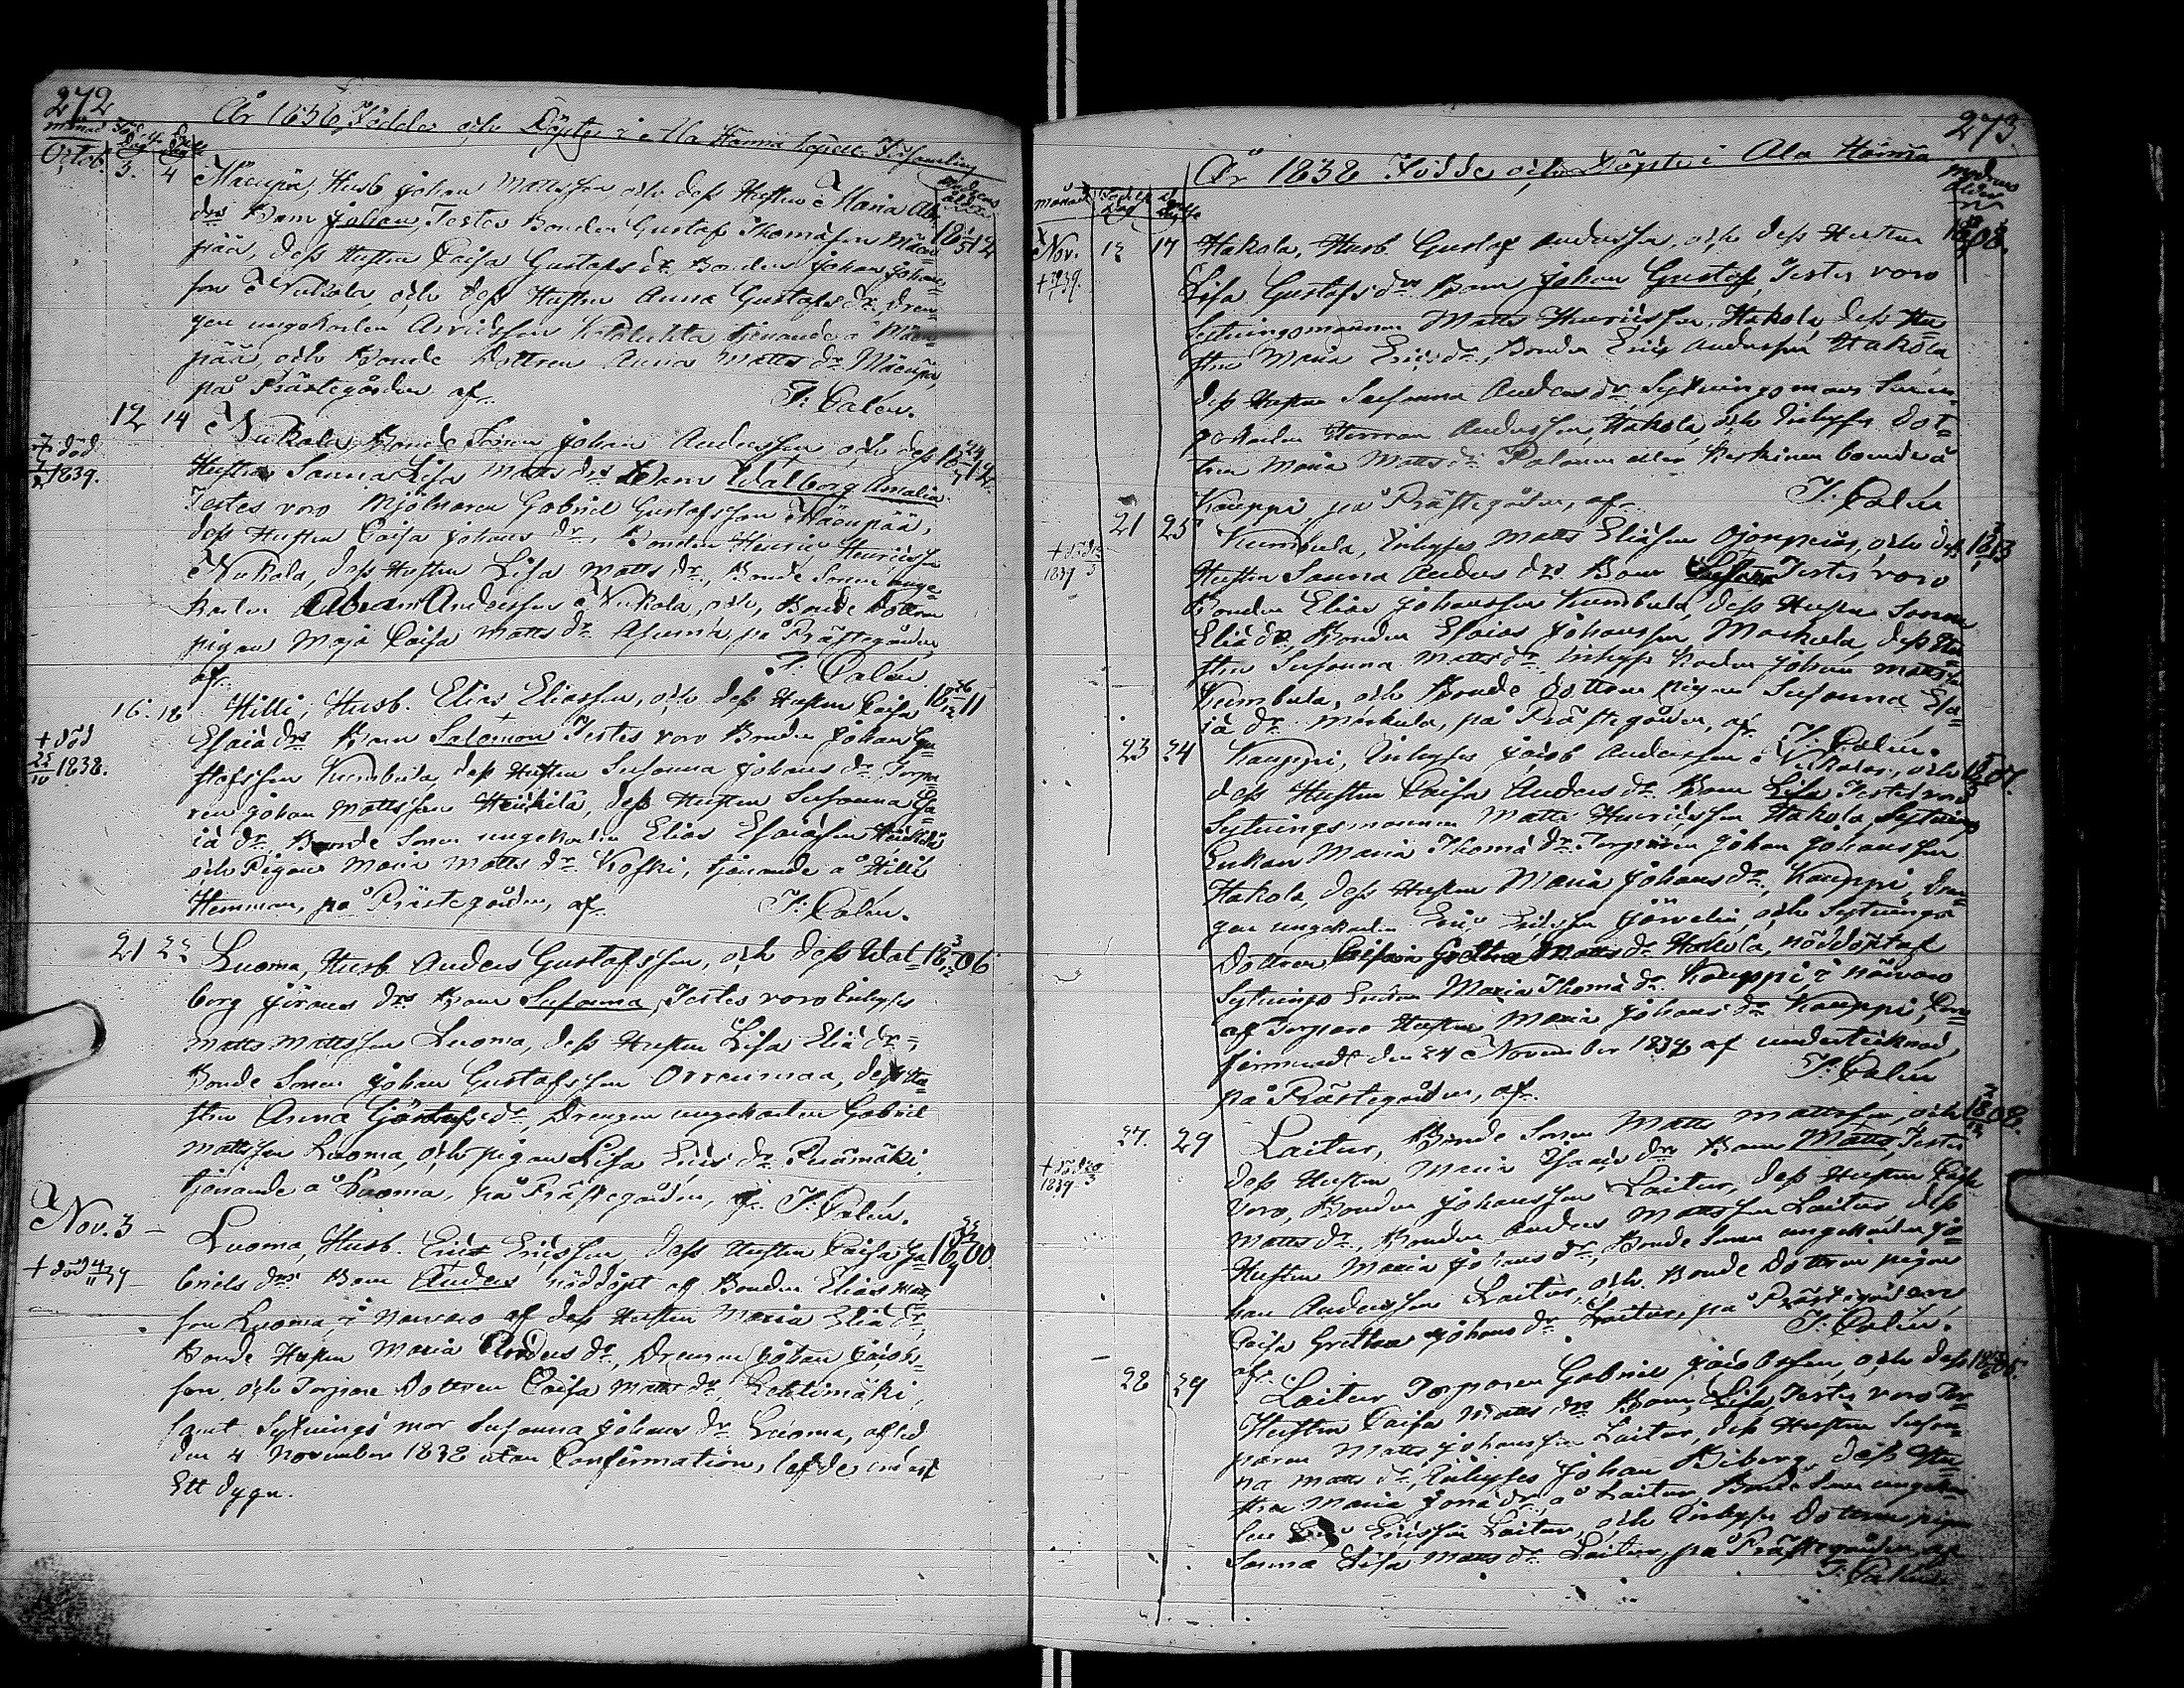 272
År 1838 Födde och Döpte i Ala Härmä Capell Församling
månad Föd. Dag Döp. Dag
modrens ålder
Octob. 3. 4 Mäenpä, Husb. Johan Mattsson, och dess Hustru Maria
drs Barn Johan, Testes Bonden Gustaf Thomasson Mäen= 18 12
pää, dess Hustru Caisa Gustafs dr, Bonden Johan Johans=
son Nukala, och dess Hustru Anna Gustafs dr, Dren=
gen ungekarlen tjenande å Mäen=
pää, och Bonde Dottren Anna Matts dr Mäenpä,
på Prästegården af. J: Calen.
12 14 Nukala, Bonde Sonen Johan Andersson och dess 18 12
död 1839.
Hustru Sanna Lisa Matts drs Barn Walborg Amalia
Testes voro Mjölnaren Gabriel Gustafsson Mäenpää,
dess Hustru Caisa Johans dr, Bonden Henric Henricsson
Nukala, dess Hustru Lisa Matts dr, Bonde Sonen unge=
karlen Abram Andersson Nukala, och Bonde Dottren
pigan Maja Caisa Matts dr på Prästegården
af. J. Calen
16. 18 Hilli, Husb. Elias Eliasson, och dess Hustru Caisa 18 11
Esaiæ drs Barn Salomon Testes voro Bonden Johan Gu=
+ död 22/10 1838.
stafsson Kumbula, dess Hustru Susanna Johans dr Torpa=
ren Johan Mattsson Heikilä, dess Hustru Susanna Esa=
iæ dr, Bonde Sonen ungekarlen Elias Esaiasson Heikilä
och Pigan Maria Matts dr Koski, tjenande å Hilli
Hemman, på Prästegården, af. J: Calen.
21 22 Luoma, Husb. Anders Gustafsson, och dess Wal= 18 06
borg Jörans drs Barn Susanna, Testes voro Inhyses
Matts Mattsson Luoma, dess Hustru Lisa Eliæ dr,
Bonde Sonen Johan Gustafsson Orrenmaa, dess Hu=
stru Anna Gustafs dr, Drengen ungekarlen Gabriel
Mattsson Luoma, och pigan Lisa Erics dr
tjenande å Luoma, på Prästegården, af. J: Calen.
Nov. 3 – Luoma, Husb. Eric Ericsson, dess Hustru Caisa Ga= 18 00
+ död 4/11
briels drs Barn Anders nöddöpt af Bonden Elias Matts
son Luoma, i närvaro af dess Hustru Maria Eliæ dr,
Bonde Hustrun Maria Anders dr, Drengen Johan Jacobs=
son, och Torpare Dottren Caisa Matts dr Lehtimäki,
samt Sytnings mor Susanna Johans dr Luoma, afled
den 4 November 1838 utan Confirmation, lefde endast
Ett dygn.
273.
År 1838 Födde och Döpte i Ala Härmä
månad Föd. Dag
modrens ålder
Nov. 12 17 Hakola, Husb. Gustaf Andersson, och dess Hustru 18 08.
+ 1839.
Lisa Gustafs drs Barn Johan Gustaf, Testes voro
Sytningsmannen Matts Henricsson Hakola, dess Hu=
stru Maria Erics dr, Bonden Eric Andersson Hakola,
dess Hustru Susanna Anders dr, Sytningsmans Sonen
Herman Andersson, Hakola, och Inhyses Dot=
tren Maria Matts dr eller Keskinen boende å
Kauppi på Prästegården, af. J. Calen
21 25 Kumbula, Inhyses Matts Eliasson och dess 18 13
+ död 1839
Hustru Sanna Anders drs Barn Gustava, Testes voro
Bonden Elias Johansson Kumbula, dess Hustru Sanna
Eliæ dr, Bonden Esaias Johansson, Maskula, dess Hu=
stru Susanna Matts dr, Inhyses karlen Johan Mattsson
Kumbula, och Bonde Dottren pigan Susanna Esa=
iæ dr Maskula, på Prästegården, af. J. Calen.
23 24 Kauppi, Inhyses Jacob Andersson Nukala, och 18 07.
dess Hustru Caisa Anders dr. Barn Lisa Testes voro
Sytningsmannen Matts Henricsson Hakola, Sytnings
Enkan Maria Thomæ dr, Torparen Johan Johansson
Hakola, dess Hustru Maria Johans dr, Kauppi, dren=
gen ungekarlen Eric Ericsson Järvelin, och Sytnings
Dottren Caisa Gretha Matts dr Hakola, nöddöpt af
Sytnings Enkan Maria Thomæ dr Kauppi i närvaro
af Torpare Hustrun Maria Johans dr Kauppi, Con=
firmerad den 24 November 1838 af undertecknad,
på Prästegården, af. J. Calen
27. 29 Laitur, Bonde Sonen Matts Mattsson, och 18 08.
+ död 1839
dess Hustru Maria Isacs drs Barn Matts, Testes
voro, Bonden Johansson Laitur, dess Hustru
Matts dr, Bonden Anders Mattsson Laitur, dess
Hustru Maria Johans dr, Bonde Sonen ungekarlen Jo=
han Andersson Laitur, och Bonde Dottren pigan
Caisa Gretha Johans dr Laitur, på Prästegården
af. J. Calen.
28 29 Laitur Torparen Gabriel Jacobsson, och dess 18 05.
Hustru Caisa Matts drs Barn Lisa, Testes voro Tor=
paren Matts Johansson Laitur, dess Hustru Susan=
na Matts dr, Inhyses Johan Biberg, dess Hu=
stru Maria Jonæ dr å Laitur, Bonde Sonen ungekar=
len Eric Ericsson Laitur, och Inhyses Dottren pigan
Sanna Lisa Matts dr Laitur, på Prästegården, af
J. Calen